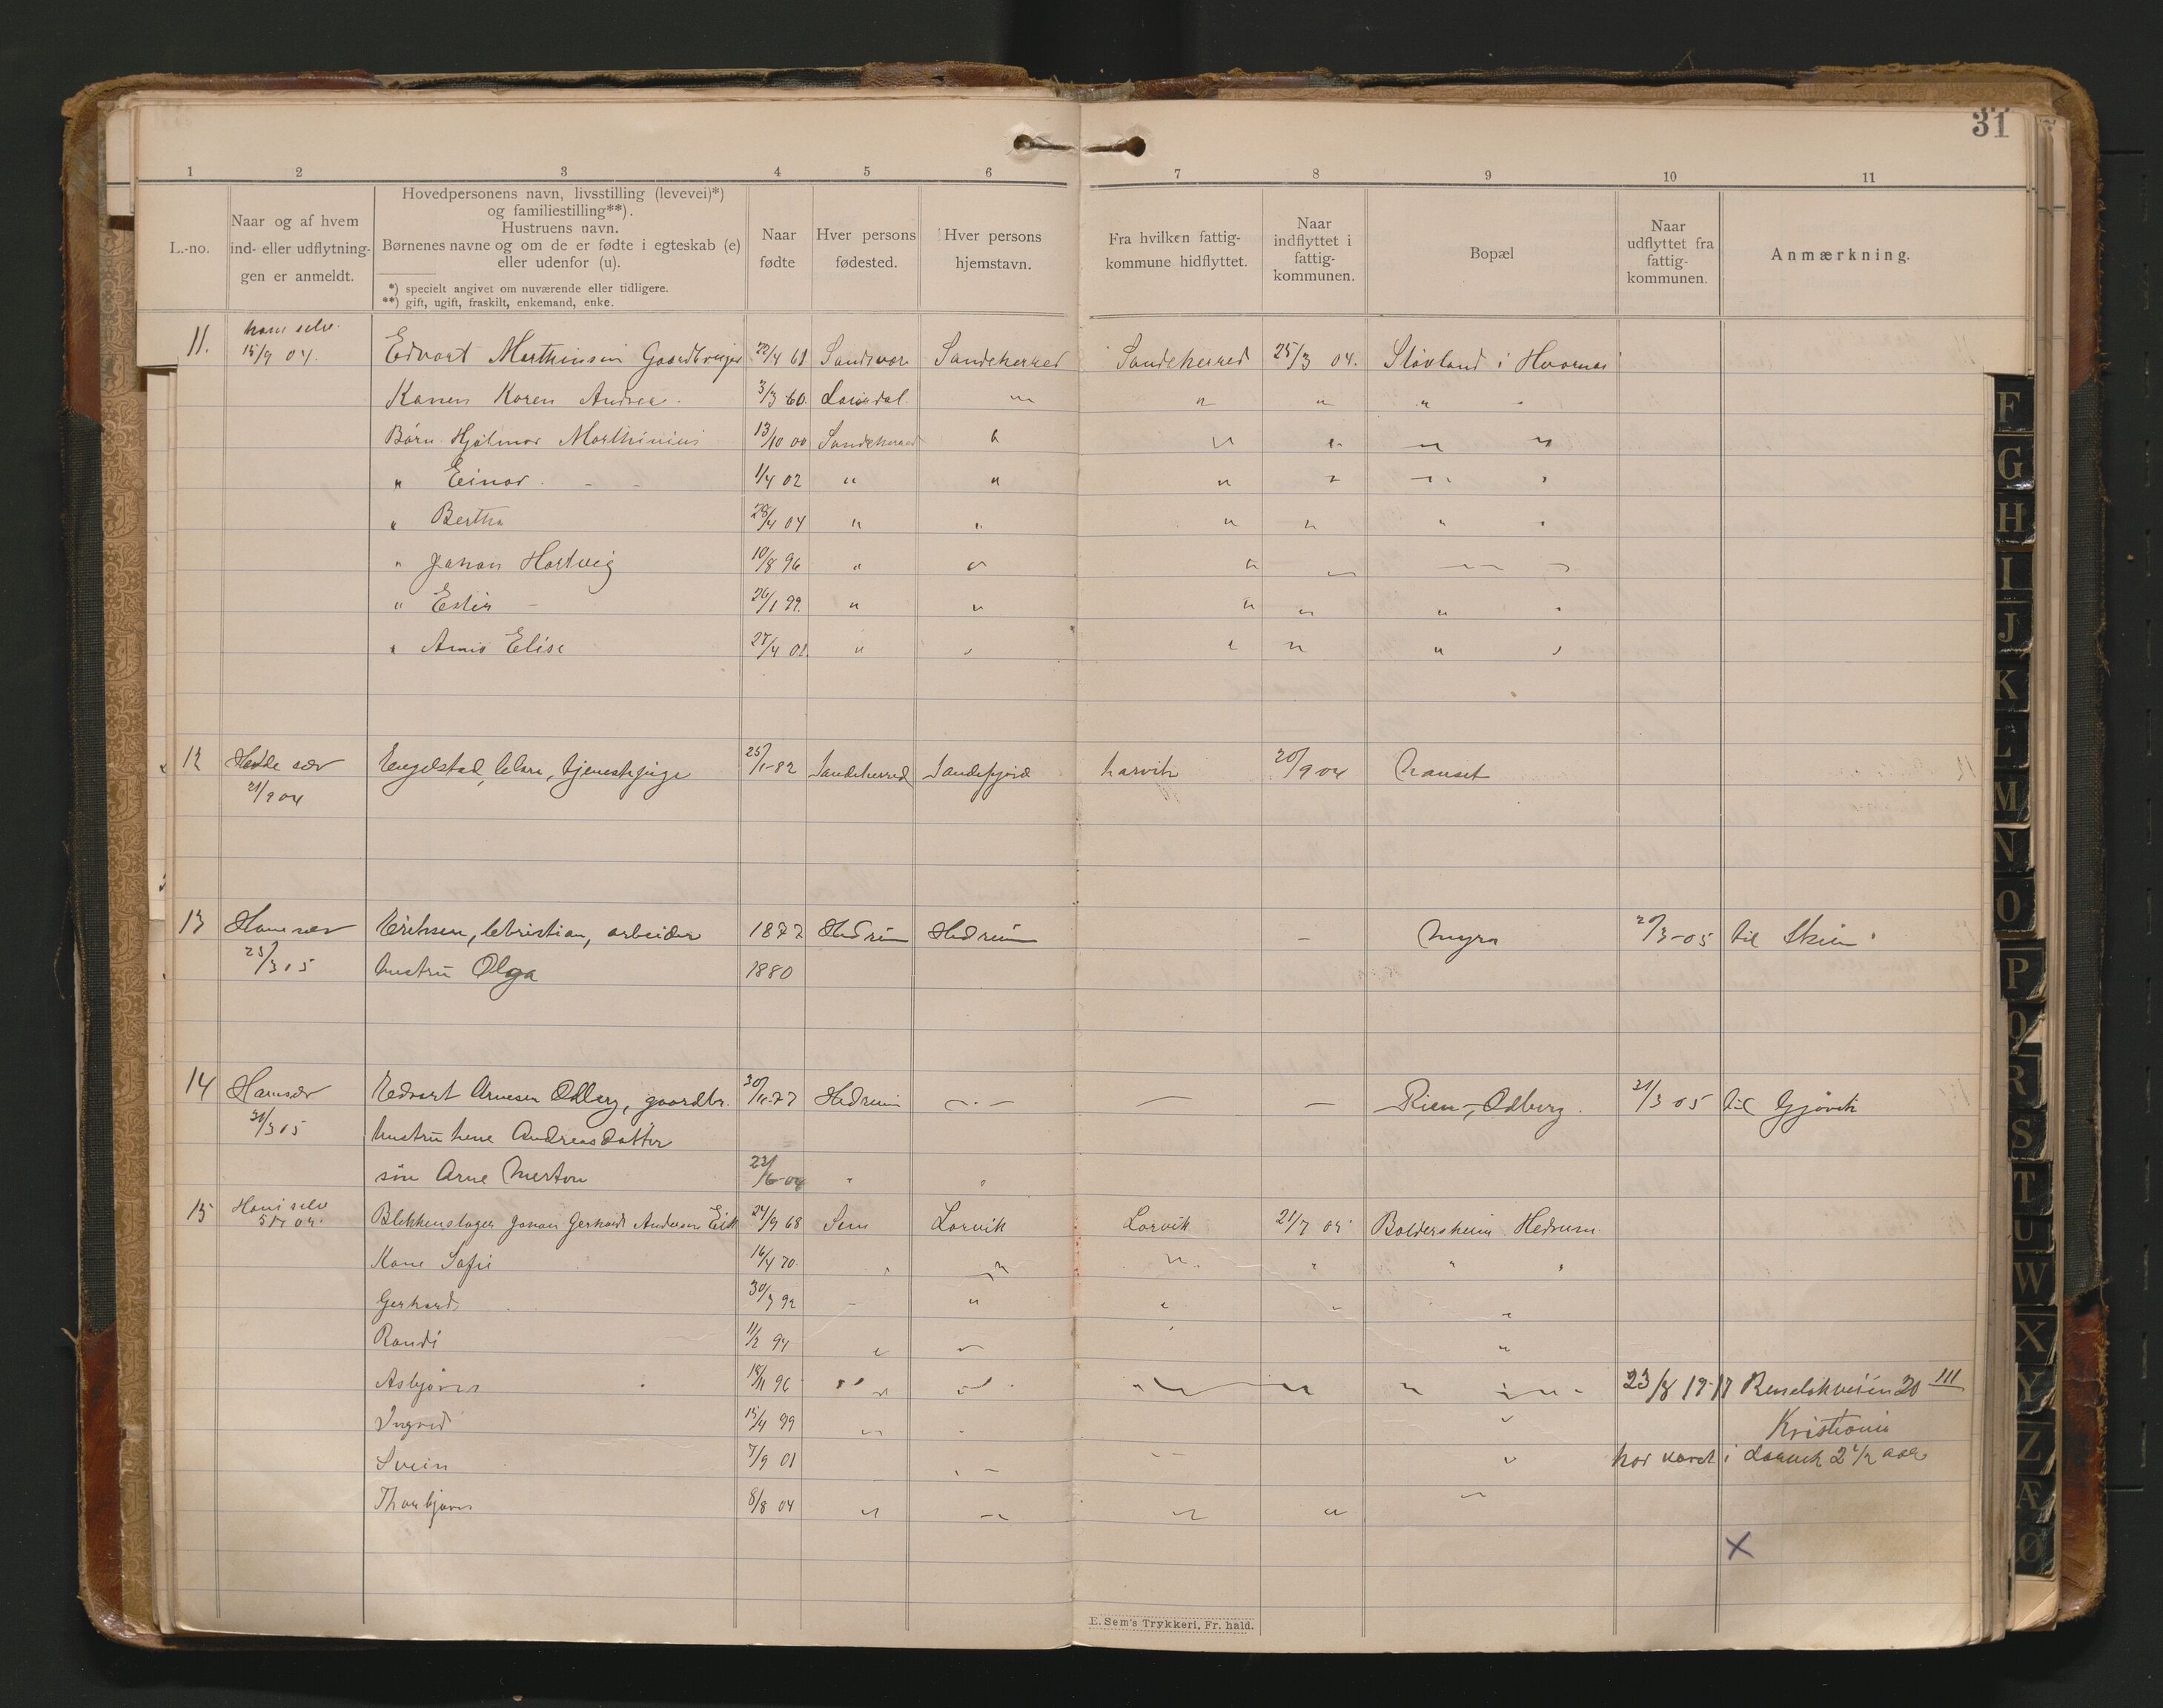 31
1 2 3 4 5 6 7 8 9 10 11
L.-no.
Naar og af hvem
ind- eller udflytning-
gen er anmeldt.
Hovedpersonens navn, livsstilling (levevei)*)
og familiestilling**).
Hustruens navn.
Børnenes navne og om de er fødte i egteskab (e)
eller udenfor (u).
*) specielt angivet om nuværende eller tidligere.
**) gift, ugift, fraskilt, enkemand, enke.
Naar
fødte
Hver persons
fødested.
Hver persons
hjemstavn.
Fra hvilken fattig-
kommune hidflyttet.
Naar
indflyttet i
fattig-
kommunen.
Bopæl
Naar
udflyttet fra
fattig-
kommunen.
Anmærkning.
ham selv
11. 15/9 04. Edvart Marthinsen Gaardbruger 22/4 61 Sandsvær Sandeherred Sandeherred 25/3 04. Støvland i Hvarnes
Konen Karen Andrea. 3/3 60 Laurdal " " " "
Børn Hjalmar Marthinius 13/10 00 Sandeherred " " " " "
" Einar 1/4 02 " " " " " "
" Bertha 28/4 04 " " " " " "
" Johan Hartvig 10/8 96 " " " " " "
" Ester 26/1 99. " " " " " "
" Anna Elise 27/4 01. " " " " " "
12 Hende selv Engelstad, Clara, tjenestepige 25/1-82 Sandeherred Sandefjord Larvik 20/9 04 Nanset
21/9 04
13 Ham selv Eriksen, Christian, arbeider 1877 Hedrum Hedrum - Myra 20/3-05 til Skien
25/3 05 hustru Olga 1880
14 Ham selv Edvart Arnesen Odberg, gaardbr. 30/11-77 Hedrum - - - Rien, Odberg. 31/3 05 til Gjøvik
31/3 05 hustru Lene Andreasdatter
søn Arne Marton 22/6-04 " "
15 Ham selv Blikkenslager Johan Gerhard Andersen Eik 24/9 68 Sem Larvik Larvik 21/7 04 Baldersheim Hedrum.
Kone Sofie 16/4 70. " " " " " "
Gerhard 30/3 92 " " " " "
Randi 11/2 94 " " "
Asbjørn 18/11 96 " " " " " " 23/8 1917 20 III
Ingrid 15/4 99 " "
Kristiania
Svein 7/9 01 " " har været i Larvik 2 1/2 aar
Thorbjørn 8/8 04 " " " " "
X
E. Sem's Trykkeri, Fr. hald.
F
G
H
I
J
K
L
M
N
O
P
Q
R
S
T
U
W
X
Y
Z
Æ
Ø